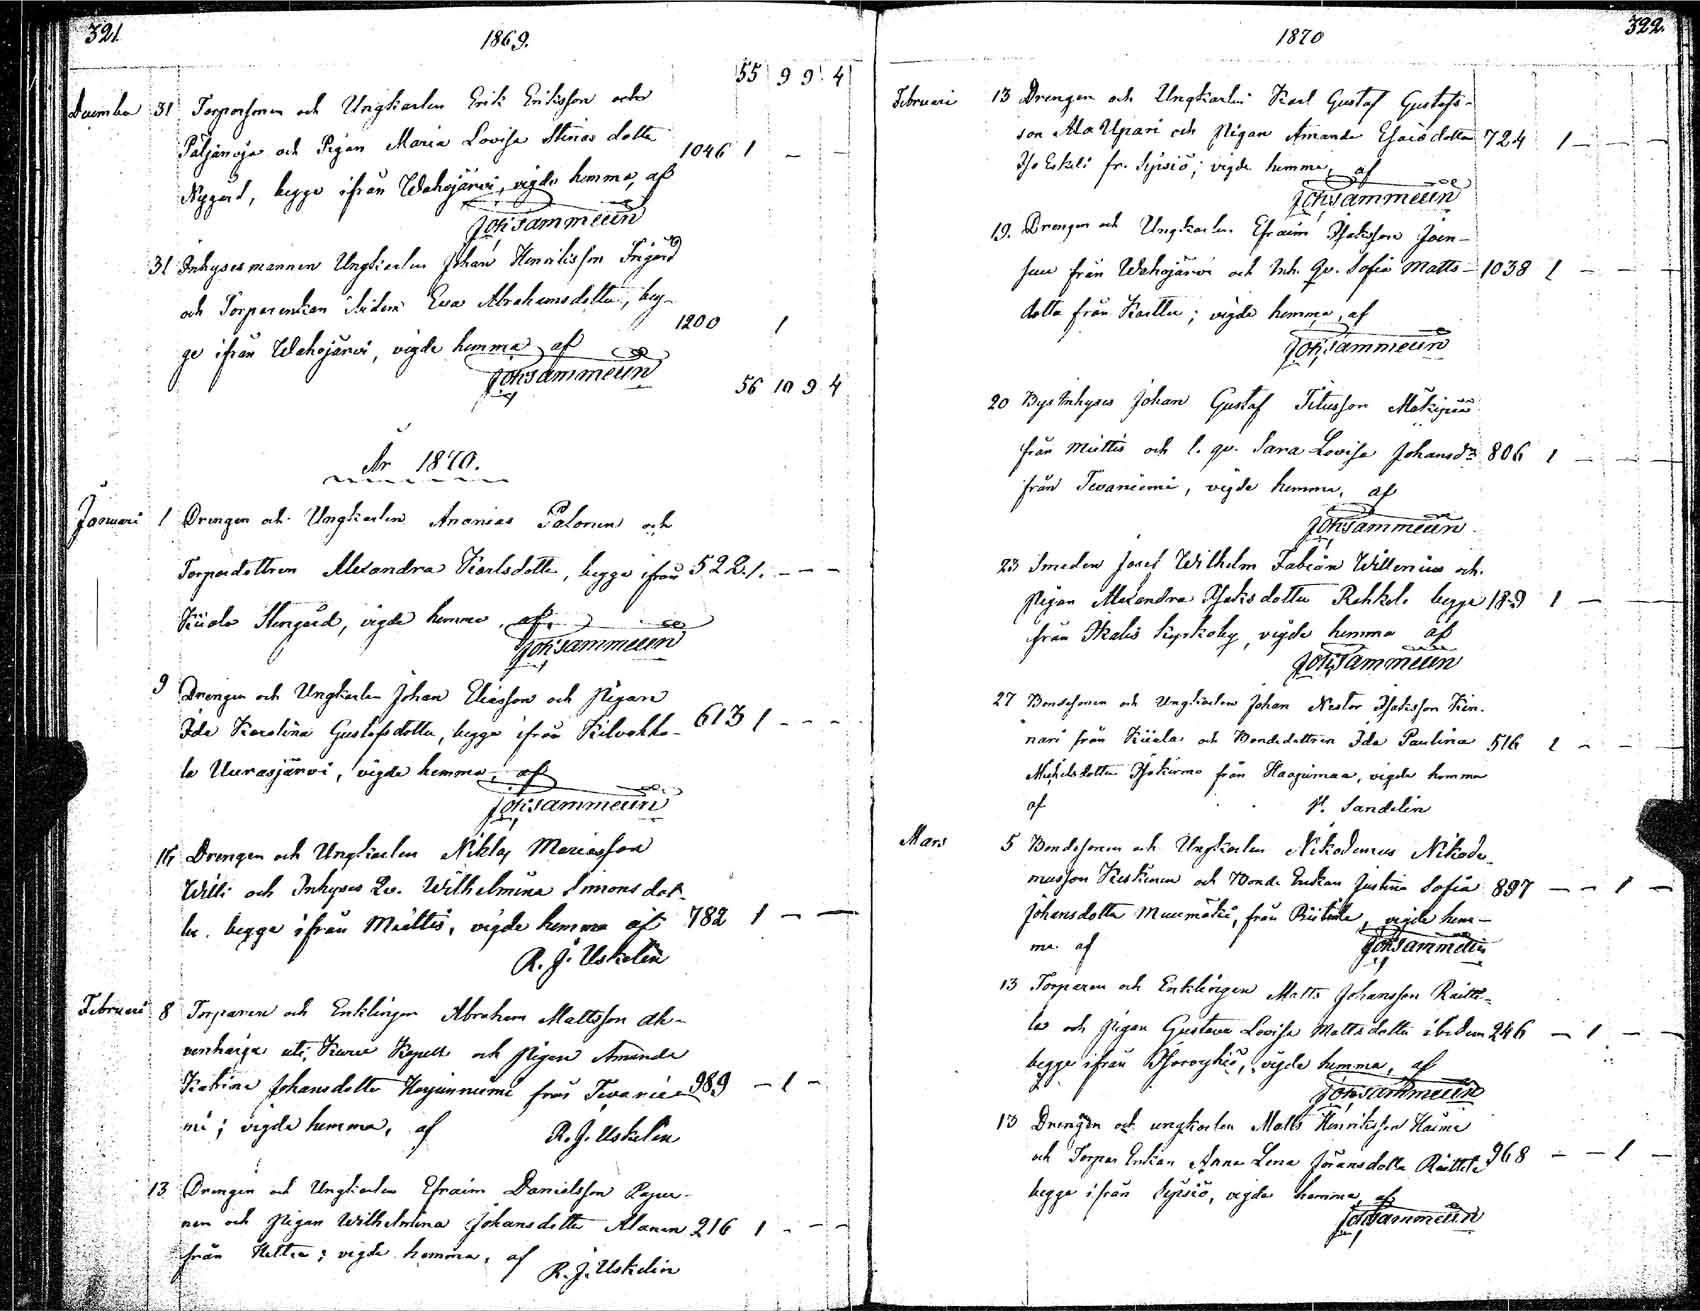 321
1869.
55 9 9 4
December 31 Torparsonen och Ungkarlen Erik Eriksson och
Päljänoja och Pigan Maria Lovisa Stinas dotter 1046 1 – –
Nygård, begge ifrån Wahojärvi, vigde hemma, af
Joh: Sammelin
31 Inhysesmannen Ungkarlen Johan Henriksson Frigård
och Torparenkan ibidem Eva Abrahamsdotter, beg-
ge ifrån Wahojärvi, vigde hemma af 1200 1
Joh: Sammelin
56 10 9 4
År 1870.
Januari 1 Drengen och Ungkarlen Ananias Palonen och
Torpardottren Alexandra Karlsdotter, begge ifrån 522 1. – – –
Kiiala Stengård, vigde hemma, af
Joh: Sammelin
9 Drengen och Ungkarlen Johan Eliasson och Pigan
Ida Karolina Gustafsdotter, begge ifrån Kilvakko- 613 1 – – –
la Uurasjärvi, vigde hemma, af
Joh: Sammelin
Drengen och Ungkarlen Niklas Mariasson
Willi och Inhyses Qv. Wilhelmina Simonsdot-
ter begge ifrån Miettis, vigde hemma af 782 1 – –
R. J. Uskelin
Februari 8 Torparen och Enklingen Abraham Mattsson Ah-
venharja uti Kuru Kapell och Pigan Amanda
Katrina Johansdotter Harjunniemi från Tevanie- 989 – 1 –
mi; vigde hemma, af R. J. Uskelin
13 Drengen och Ungkarlen Efraim Danielsson
nen och Pigan Wilhelmina Johansdotter Alanen 216 1 – – –
från ; vigde hemma, af R. J. Uskelin
322.
1870
Februari 13 Drengen och Ungkarlen Karl Gustaf Gustafs-
son Ala Upari och Pigan Amanda Esaiædotter 724 1 – – –
Iso Eskeli fr. Sipsiö; vigde hemma, af
Joh: Sammelin
19. Drengen och Ungkarlen Efraim Isaksson Joen-
suu från Wahojärvi och Inh. Qv. Sofia Matts- 1038 1 – – –
dotter från Kartu; vigde hemma, af
Joh: Sammelin
20 Bys Inhyses Johan Gustaf Titusson Mäkipää
från Miettis och l. qv. Sara Lovisa Johansdr 806 1 – – –
från Tevaniemi, vigde hemma, af
Joh: Sammelin
23 Smeden Josef Wilhelm Fabian Willenius och
Pigan Alexandra Isaksdotter Rahkol. begge 189 1 – –
från Ikalis Kyrkoby, vigde hemma af
Joh: Sammelin
27 Bondesonen och Ungkarlen Johan Nestor Isaksson Kin-
nari från Kiiala och Bondedottren Ida Paulina 516 1 – – –
Michelsdotter Isokurma från Haapimaa, vigde hemma
af V. Sandelin
Mars 5 Bondesonen och Ungkarlen Nikodemus Nikode-
musson Keskinen och Bonde Enkan Justina Sofia 897 – – 1 –
Johansdotter Muumäki, från Riitiala, vigde hem-
ma af Joh: Sammelin
13 Torparen och Enklingen Matts Johansson Raitti-
la och Pigan Gustava Lovisa Mattsdotter ibidem 246 – 1 – –
begge ifrån Isoröyhiö, vigde hemma, af
Joh: Sammelin
13 Drengen och ungkarlen Matts Henriksson Haime
och Torpar Enkan Anna Lena Göransdotter Raittila 968 – – 1 –
begge ifrån Sipsiö, vigde hemma, af
Joh: Sammelin